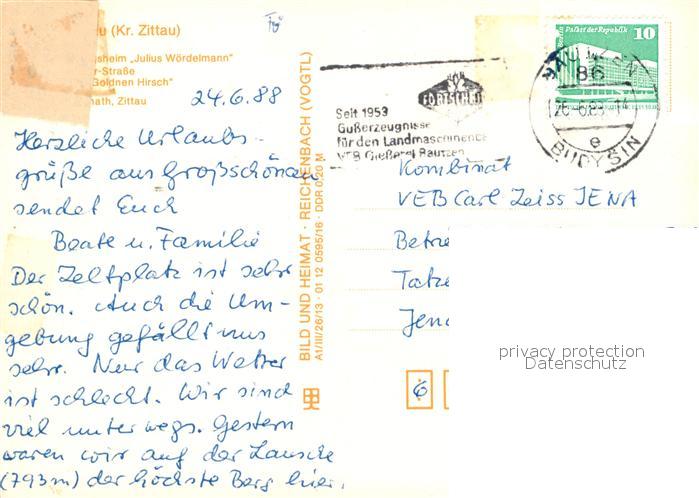 u (Kr. Zittau)
sheim „Julius Wördelmann"
r-Straße
Goldnen Hirsch"
nath, Zittau
24.6.88
Herzliche Urlaubs-
grüße aus Großschönau
sendet Euch
Beate u. Familie
Der Zeltplatz ist sehr
schön. Auch die Um-
gebung gefällt uns
sehr. Nur das Wetter
ist schlecht. Wir sind
viel unterwegs. Gestern
waren wir auf der Lausche
(793m) der höchste Berg hier.
BILD UND HEIMAT · REICHENBACH (VOGTL)
A1/III/26/13 · 01 12 0595/16 · DDR 0,20 M
FORTSCHRITT
Seit 1953
Gußerzeugnisse
für den Landmaschinenbau
VEB Gießerei Bautzen
Palast der Republik
10
BAUTZEN
86
e
BUDYŠIN
Kombinat
VEB Carl Zeiss JENA
Betri
Jena
6
privacy protection
Datenschutz